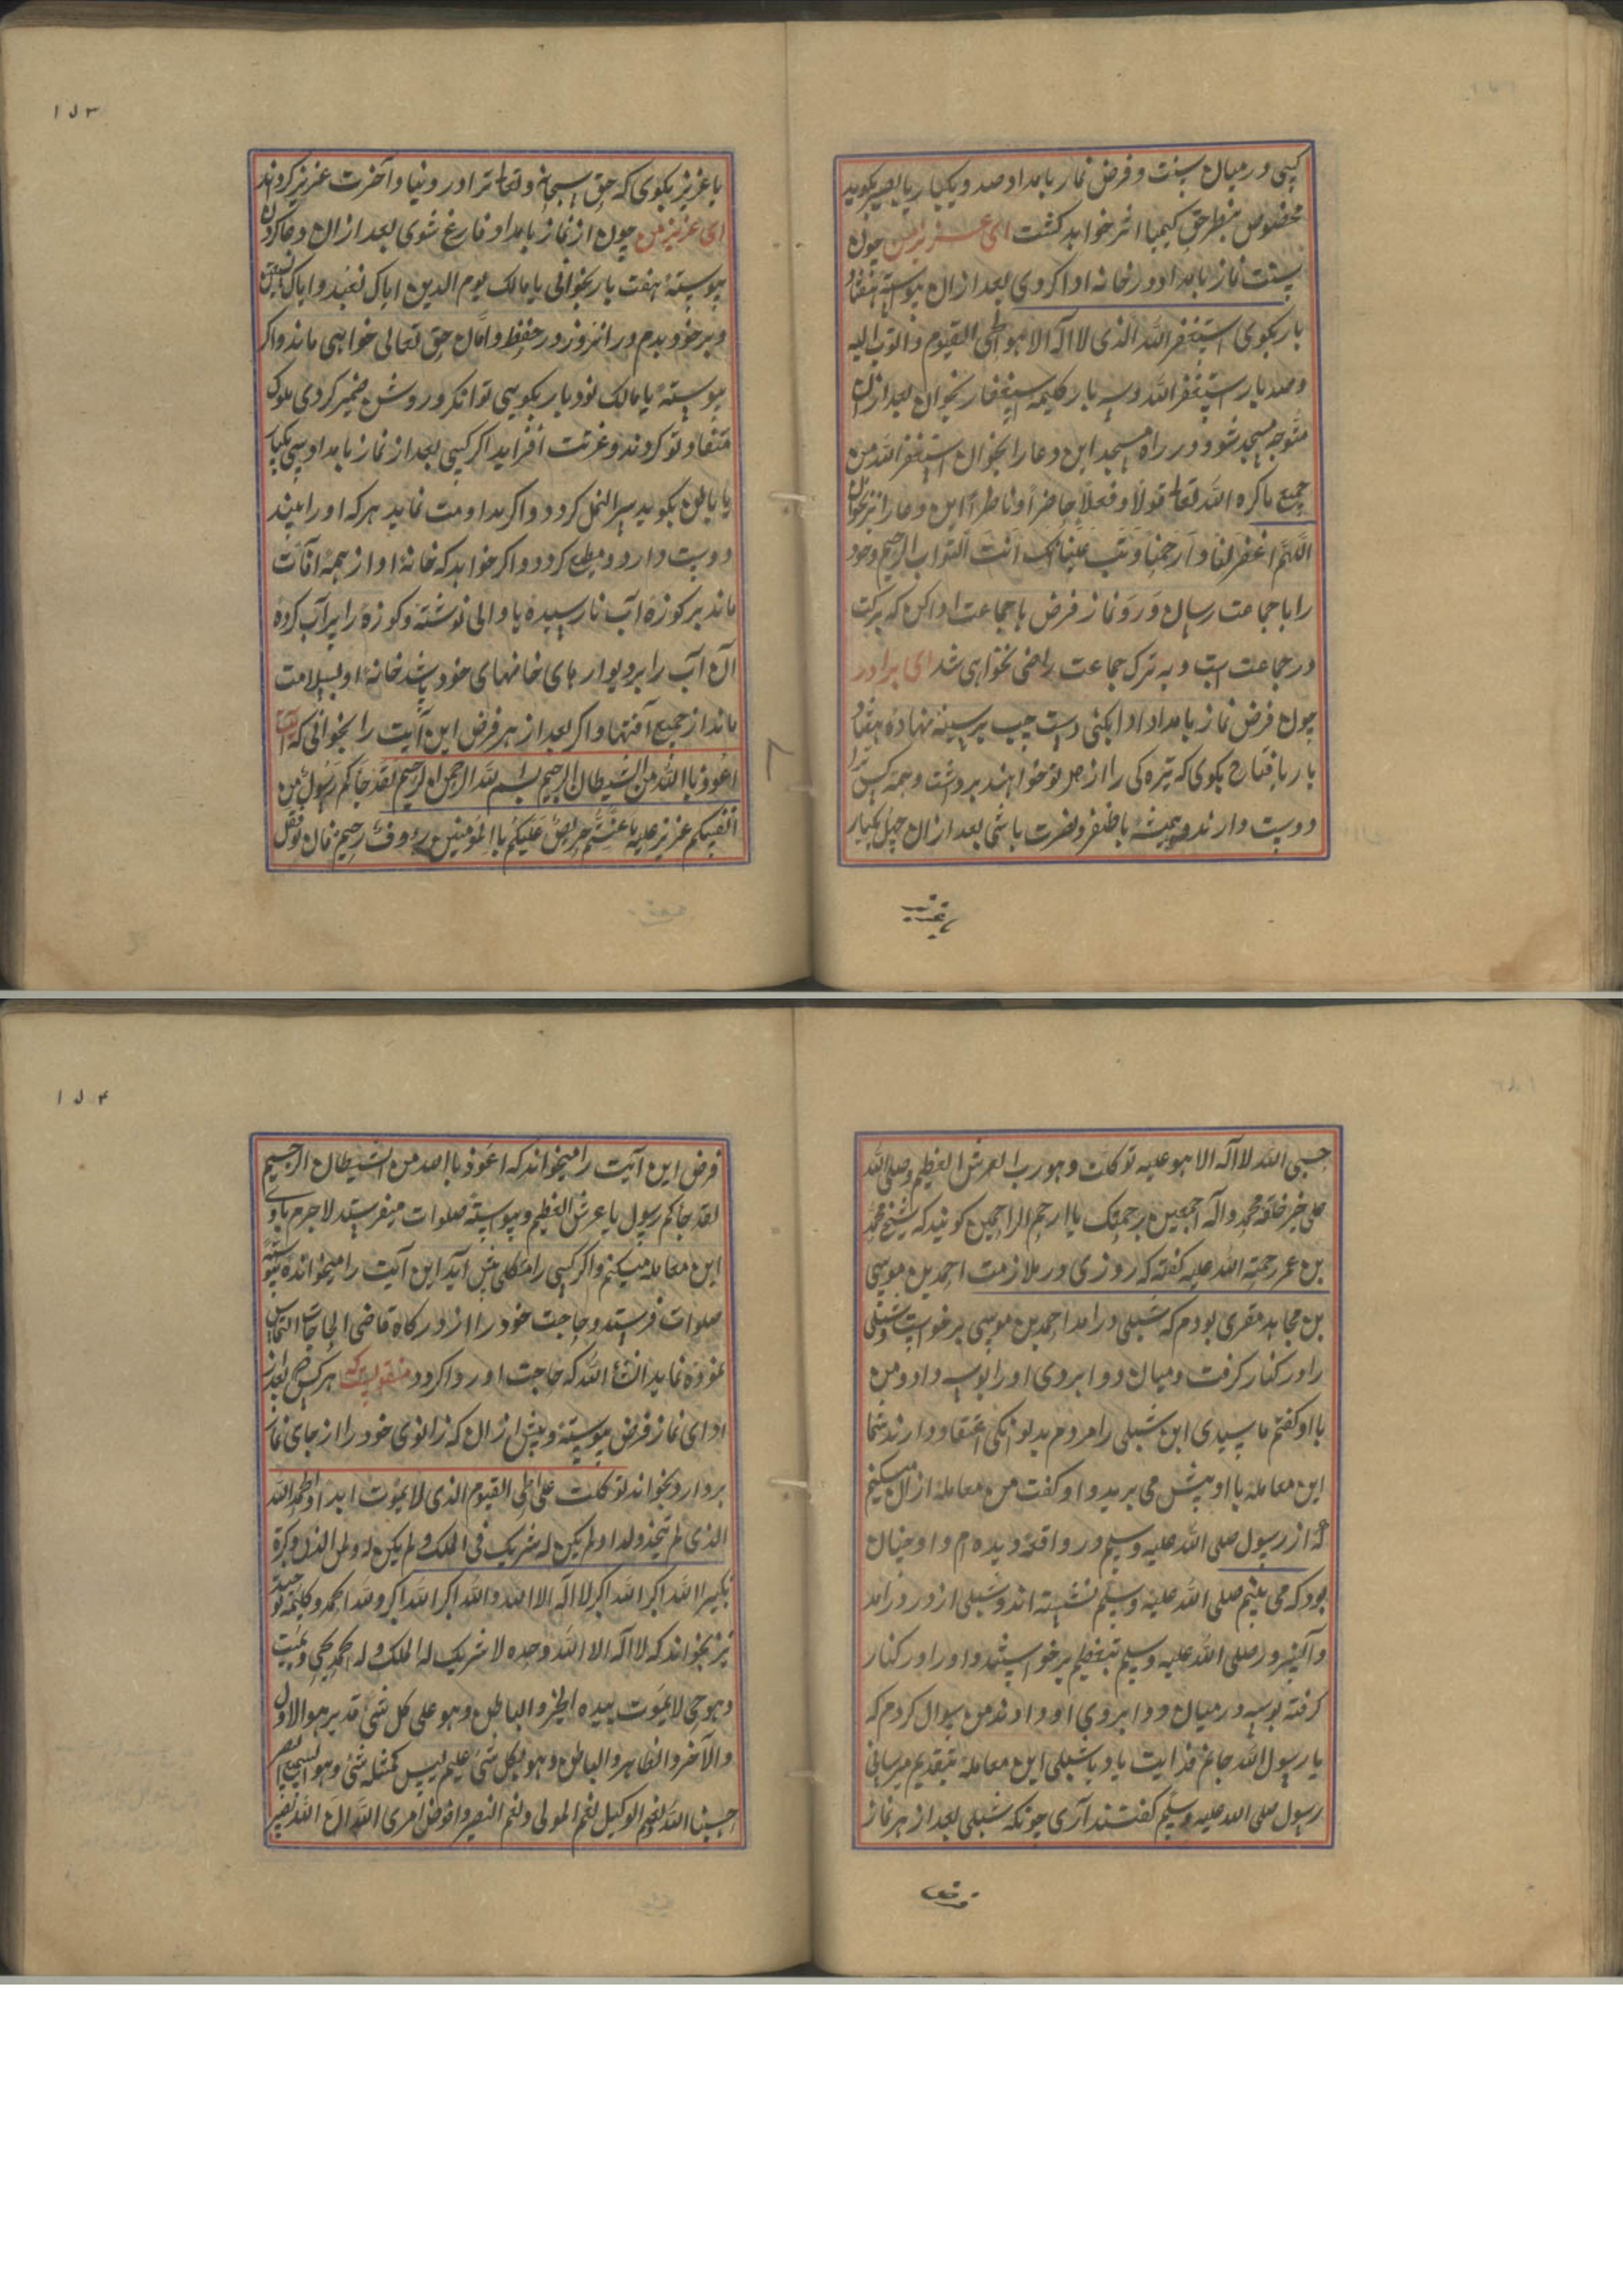 کسی در میان سنت و فرض نماز بامداد صد و یکبار یا بصیر بکوید
مخصوص بنظر حق کیمیا اثر خواهد کشت ای عزیز من چون
سنت نماز بامداد در خانه ادا کردی بعد از ان پیوسته هفتاد
بار بکوی استغفر الله الذی لا اله الا هو الحی القیوم و اتوب الیه
و صد بار استغفر الله و سه بار کلیمه استغفار بخوان بعد از ان
متوجه مسجد شو و در راه مسجد این دعا را بخوان استغفر الله من
جمیع ما کره الله تعالی قولا و فعلا حاضرا و ناظرا این دعا را نیز بخوان
اللهم اغفر لنا و ارحمنا و تب علینا انک انت التواب الرحیم و خود
را با جماعت رسان و رو نماز فرض با جماعت ادا کن که برکت
در جماعت است و به ترک جماعت راضی نخواهی شد ای برادر
چون فرض نماز بامداد ادا بکنی دست چپ بر سینه نهاده هفتاد
بار یا فتاح بکوی که تیره کی را از دل تو خواهند برداشت و همه کس ترا
دوست دارند و همیشه با ظفر و نصرت باشی بعد از ان چهل یکبار
۱۵۳
یا عزیز بکوی که حق سبحانه و تعالی ترا در دنیا و آخرت عزیز کرداند
ای عزیز من چون از نماز بامداد فارغ شوی بعد از ان دعا کردن
پیوسته هفت بار بخوانی یا مالک یوم الدین ایاک نعبد و ایاک نستعین
و بر خود بدم در انروز در حفظ و امان حق تعالی خواهی ماند و اکر
پیوسته یا مالک نود بار بکویی توانکر و روشن ضمیر کردی ملوک
منقاد تو کردند و عزت افزاید اکر کسی بعد از نماز بامداد سی یکبار
یا باطن بکوید کردد و اکر مداومت نماید هر که او را بیند
دوست دارد و مطیع کردد و اکر خواهد که خانه او از همه افات
ماند بر کوزه آب نارسیده یا والی نوشته و کوزه را پر آب کرده
آن آب را بر دیوار های خانهای خود پاشد خانه او بسلامت
ماند از جمیع آفتها و اکر بعد از هر فرض این آیت را بخوانی که
اعوذ باالله من الشیطان الرجیم بسم الله الرحمن الرحیم لقد جاکم رسول من
انفسکم عزیز علیه ما عنتم حریص علیکم باالمؤمنین رؤوف رحیم فان تولو فقل
حسبی الله لا اله الا هو علیه توکلت و هو رب العرش العظیم و صلی الله
علی خیر خلقه محمد و آله اجمعین برحمتک یا ارحم الراحمین کویند که شیخ محمد
بن عمر رحمته الله علیه کفته که روزی در ملازمت احمد بن موسی
بن مجاهد مقری بودم که شبلی درامد احمد بن موسی برخواست و شبلی
را در کنار کرفت و میان دو ابروی او را بوسه داد و من
با او کفتم یا سیدی این شبلی را مردم بدیوانکی اعتقاد دارند شما
این معامله با او پیش می برید و او کفت من معامله از ان میکنم
که از رسول صلی الله علیه وسلم در واقعه دیده ام و او خیان
بود که می بینم صلی الله علیه وسلم نشسته اند و شبلی از در درامد
و آنسرور صلی الله علیه وسلم بتعظیم برخواستند و او را در کنار
کرفته بوسه در میان دو ابروی او دادند من سوال کردم که
یا رسول الله جانم فدایت باد با شبلی این معامله بتقدیم میرسانی
رسول صلی الله علیه وسلم کفتند آری چونکه شبلی بعد از هر نماز
۱۵۴
فرض این آیت را میخواند که اعوذ باالله من الشیطان الرجیم
لقد جاکم رسول یا عرش العظیم و پیوسته صلوات میفرستد لاجرم باوی
این معامله میکنم و اکر کسی را مشکلی پیش آید این آیت را میخوانده پیوسته
صلوات فرستد و حاجت خود را از درکاه قاضی الحاجات التماس
نموده نماید انشاء الله که حاجت او روا کردد منقولست که هر کس بعد از
ادای نماز فرض پیوسته و پیش از ان که زانوی خود را از جای نماز
بردارد بخواند توکلت علی الحی القیوم الذی لا یموت ابدا و الحمد الله
الذی لم یتخذ ولدا و لم یکن له شریک فی الملک و لم یکن له ولی من الذل و کبره
تکبیرا الله اکبر الله اکبر لا اله الا الله و الله اکبر الله اکبر و لله الحمد و کلیمه توحید
نیز بخواند که لا اله الا الله وحده لا شریک له له الملک و له الحمد یحیی و یمیت
و هو حی لا یموت بیده الخیر و الباطن و هو علی کل شئ قدیر هو الاول
و الآخر و الظاهر و الباطن و هو بکل شئ علیم لیس کمثله شئ و هو السمیع البصیر
حسبنا الله و نعم الوکیل نعم المولی و نعم النصیر و افوض امری الی الله ان الله بصیر